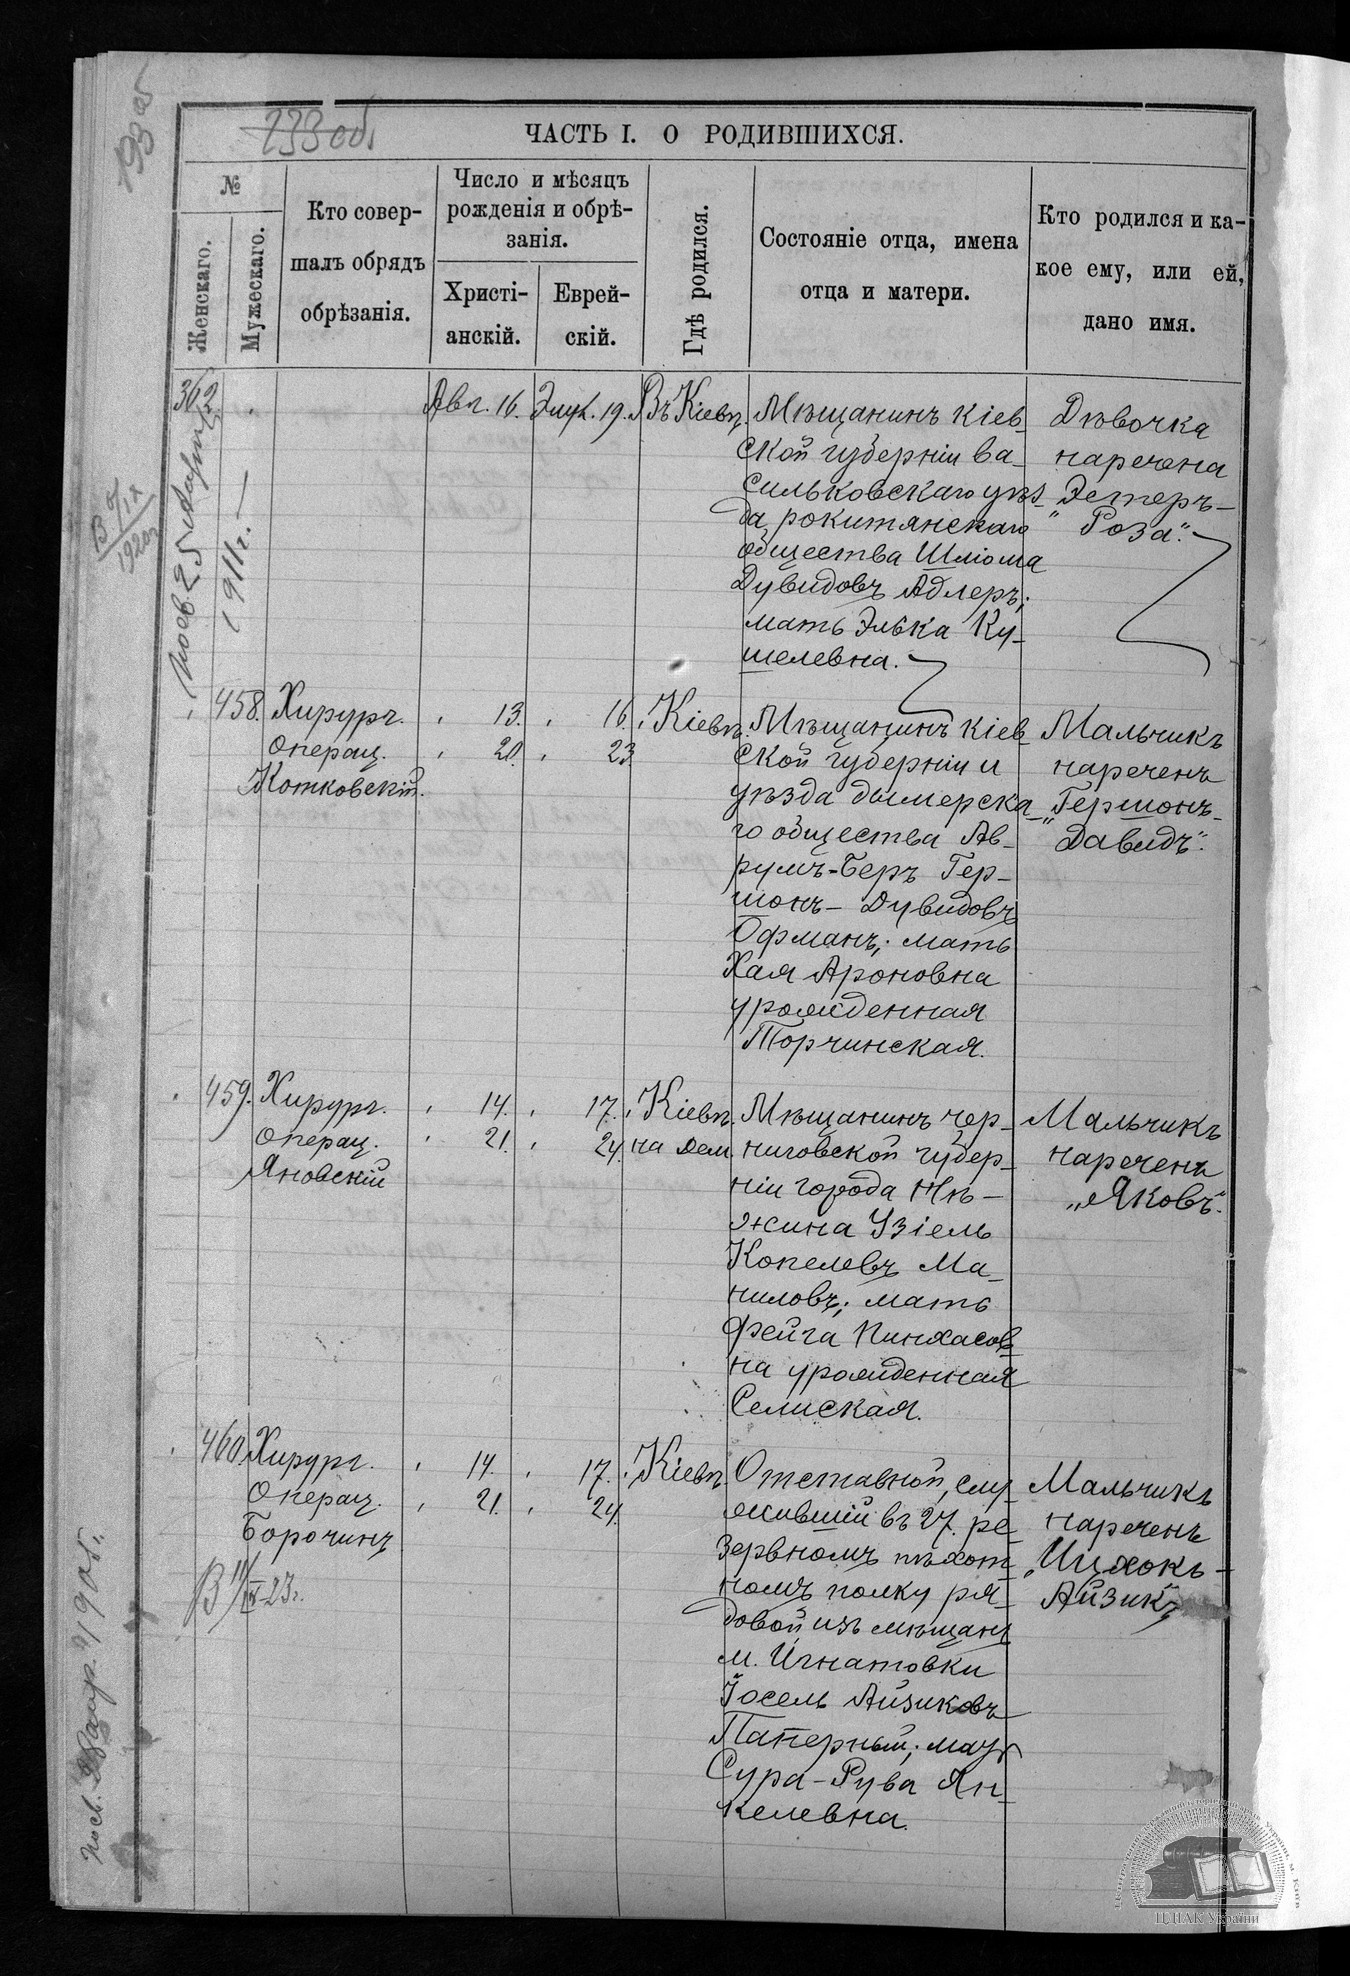 193 об
233 об.
ЧАСТЬ I. О РОДИВШИХСЯ.
№
Женскаго.
Мужескаго.
Кто совер-
шалъ обрядъ
обрѣзанія.
Число и мѣсяцъ
рожденія и обрѣ-
занія.
Христі-
анскій.
Еврей-
скій.
Гдѣ родился.
Состояніе отца, имена
отца и матери.
Кто родился и ка-
кое ему, или ей,
дано имя.
362
Авг. 16. Элул. 19. Въ Кіевѣ.
Мѣщанинъ Кіев-
ской губерніи Ва-
сильковскаго уѣз-
да, рокитянскаго
общества Шліома
Дувидовъ Адлеръ;
мать Элька Ку-
шелевна.
Дѣвочка
наречена
Эстеръ-
"Роза".
1911 г.
В
IX
1920 г.
458. Хирург.
Операц.
Котковскій.
" 13. " 16.
" 20. " 23
" Кіевѣ.
Мѣщанинъ Кіев-
ской губерніи и
уѣзда дымерска-
го общества Ав-
румъ-Беръ Гер-
шонъ-Дувидовъ
Офманъ; мать
Хая Ароновна
урожденная
Торчинская.
Мальчикъ
нареченъ
"Гершонъ-
Давидъ".
459. Хирург.
Операц.
Яновскій
" 14. " 17.
" 21. " 24.
" Кіевѣ.
на Дем.
Мѣщанинъ чер-
ниговской губер-
ніи города Нѣ-
жина Узіель
Копелевъ Ма-
ниловъ; мать
Фейга Пинхасов-
на урожденная
Селиская.
Мальчикъ
нареченъ
"Яковъ".
460. Хирург.
Операц.
Борочинъ
" 14. " 17.
" 21. " 24.
" Кіевѣ.
Отставной, слу-
жившій въ 27. ре-
зервномъ пѣхот-
номъ полку ря-
довой изъ мѣщанъ
м. Игнатовки
Іосель Айзиковъ
Паперный; мать
Сура-Рува Ян-
келевна.
Мальчикъ
нареченъ
"Ицхокъ-
Айзикъ"
В 11/IV 23 г.
ЦДІАК України